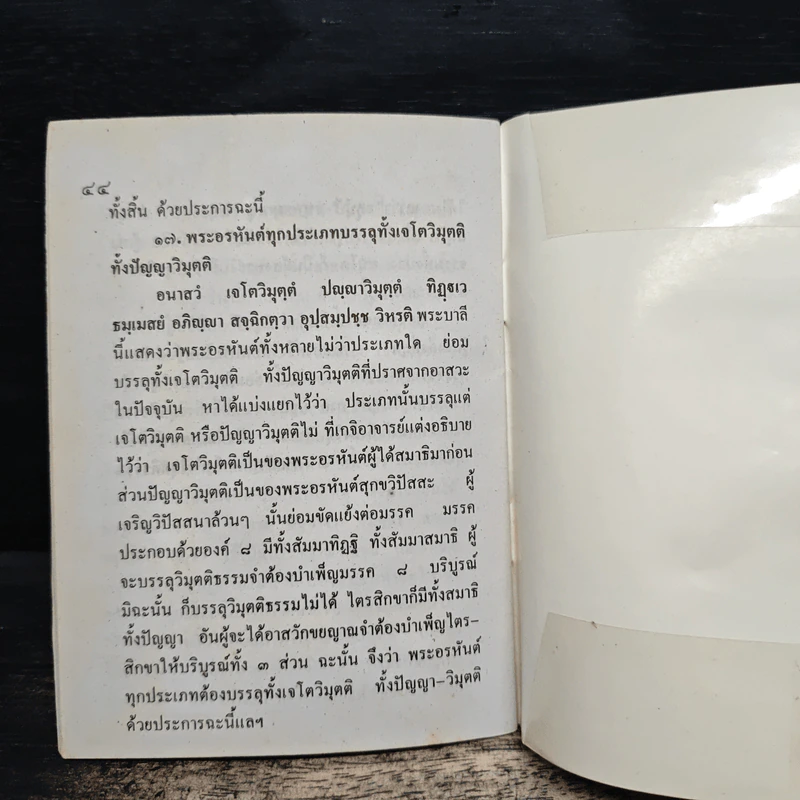 ๔๔
ทั้งสิ้น ด้วยประการฉะนี้
๑๗. พระอรหันต์ทุกประเภทบรรลุทั้งเจโตวิมุตติ
ทั้งปัญญาวิมุตติ
อนาสวํ เจโตวิมุตฺตํ ปญฺญาวิมุตฺตํ ทิฏฺฐเว
ธมฺเมสยํ อภิญฺญา สจฺฉิกตฺวา อุปฺสมฺปชฺช วิหรติ พระบาลี
นี้แสดงว่าพระอรหันต์ทั้งหลายไม่ว่าประเภทใด ย่อม
บรรลุทั้งเจโตวิมุตติ ทั้งปัญญาวิมุตติที่ปราศจากอาสวะ
ในปัจจุบัน หาได้แบ่งแยกไว้ว่า ประเภทนั้นบรรลุแต่
เจโตวิมุตติ หรือปัญญาวิมุตติไม่ ที่เกจิอาจารย์แต่งอธิบาย
ไว้ว่า เจโตวิมุตติเป็นของพระอรหันต์ผู้ได้สมาธิมาก่อน
ส่วนปัญญาวิมุตติเป็นของพระอรหันต์สุกขวิปัสสะ ผู้
เจริญวิปัสสนาล้วนๆ นั้นย่อมขัดแย้งต่อมรรค มรรค
ประกอบด้วยองค์ ๘ มีทั้งสัมมาทิฏฐิ ทั้งสัมมาสมาธิ ผู้
จะบรรลุวิมุตติธรรมจำต้องบำเพ็ญมรรค ๘ บริบูรณ์
มิฉะนั้น ก็บรรลุวิมุตติธรรมไม่ได้ ไตรสิกขาก็มีทั้งสมาธิ
ทั้งปัญญา อันผู้จะได้อาสวักขยญาณจำต้องบำเพ็ญไตร–
สิกขาให้บริบูรณ์ทั้ง ๓ ส่วน ฉะนั้น จึงว่า พระอรหันต์
ทุกประเภทต้องบรรลุทั้งเจโตวิมุตติ ทั้งปัญญา–วิมุตติ
ด้วยประการฉะนี้แลฯ